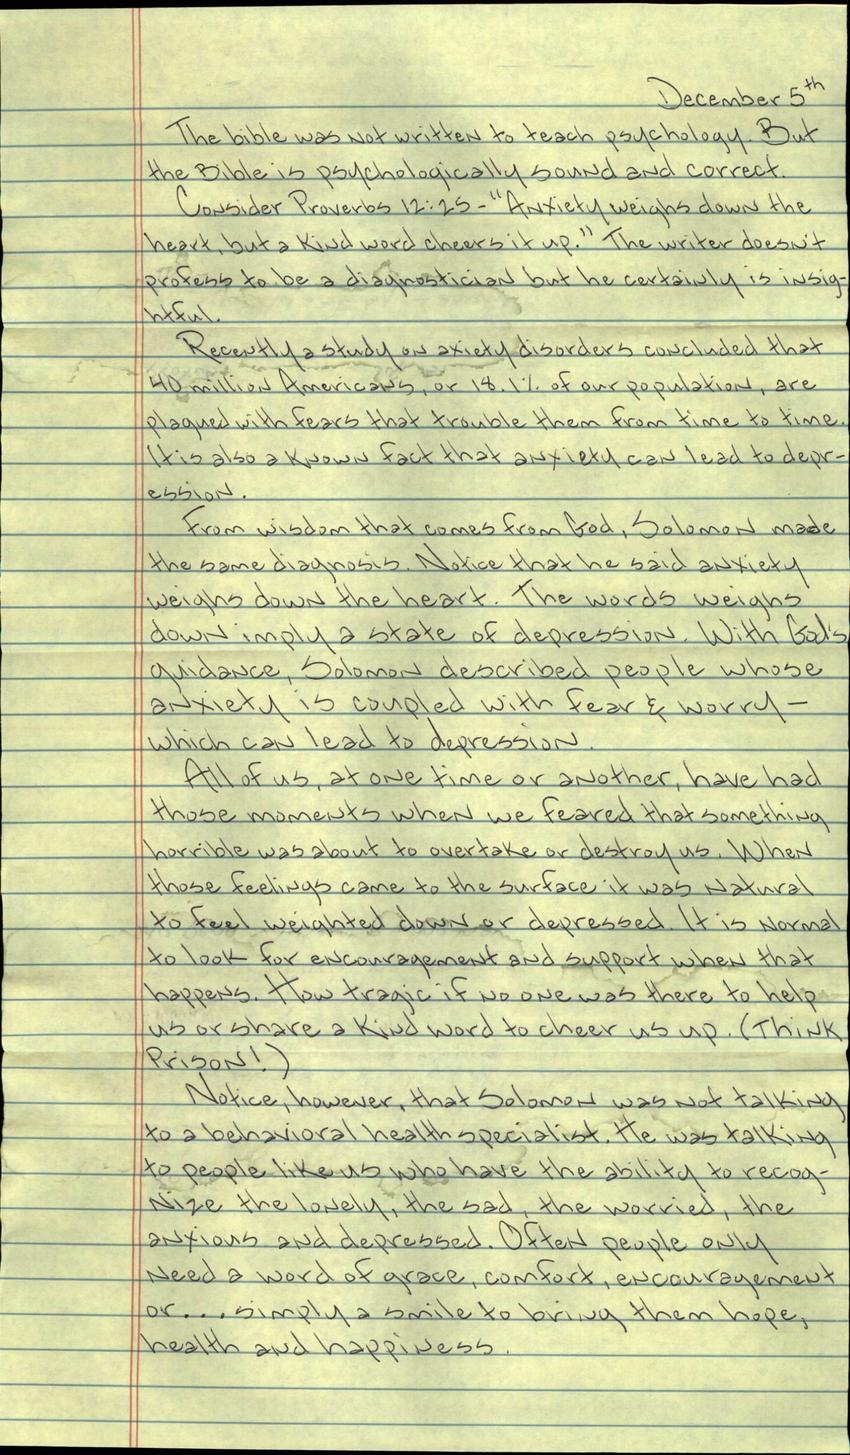 December 5th
The bible was not written to teach psychology. But
the Bible is psychologically sound and correct.
Consider Proverbs 12:25 - "Anxiety weighs down the
heart, but a kind word cheers it up." The writer doesn't
profess to be a diagnostician but he certainly is insig-
htful.
Recently a study on axiety disorders concluded that
40 million Americans, or 18.1% of our population, are
plagued with fears that trouble them from time to time.
It is also a known fact that anxiety can lead to depr-
ession.
From wisdom that comes from God, Solomon made
the same diagnosis. Notice that he said anxiety
weighs down the heart. The words weighs
down imply a state of depression. With God's
guidance, Solomon described people whose
anxiety is coupled with fear & worry -
which can lead to depression.
All of us, at one time or another, have had
those moments when we feared that something
horrible was about to overtake or destroy us. When
those feelings came to the surface it was natural
to feel weighted down or depressed. It is normal
to look for encouragement and support when that
happens. How tragic if no one was there to help
us or share a kind word to cheer us up. (Think
Prison!)
Notice, however, that Solomon was not talking
to a behavioral health specialist. He was talking
to people like us who have the ability to recog-
nize the lonely, the sad, the worried, the
anxious and depressed. Often people only
need a word of grace, comfort, encouragement
or... simply a smile to bring them hope,
health and happiness.